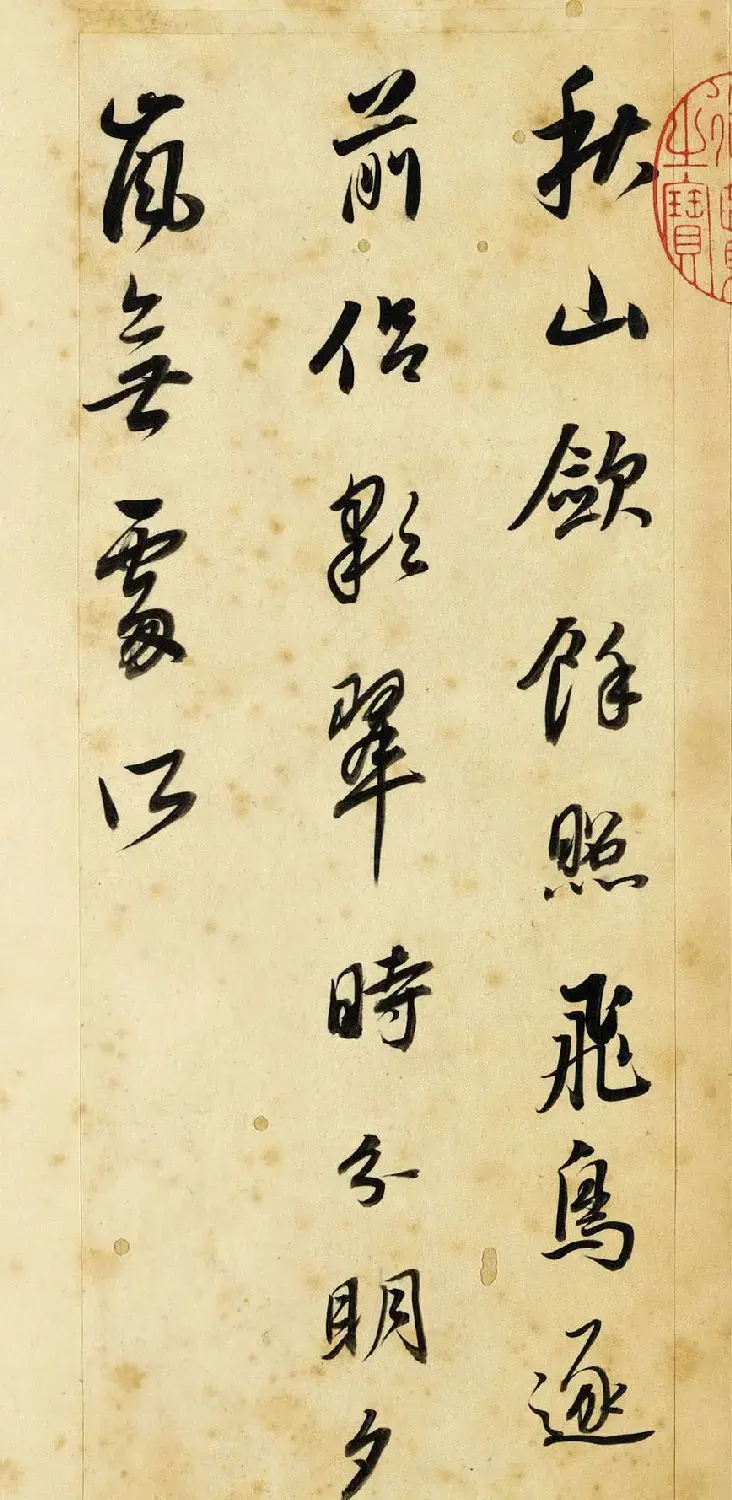 秋山歛餘照飛鳥逐
前侣彩翠時分明夕
嵐無處所
之寶